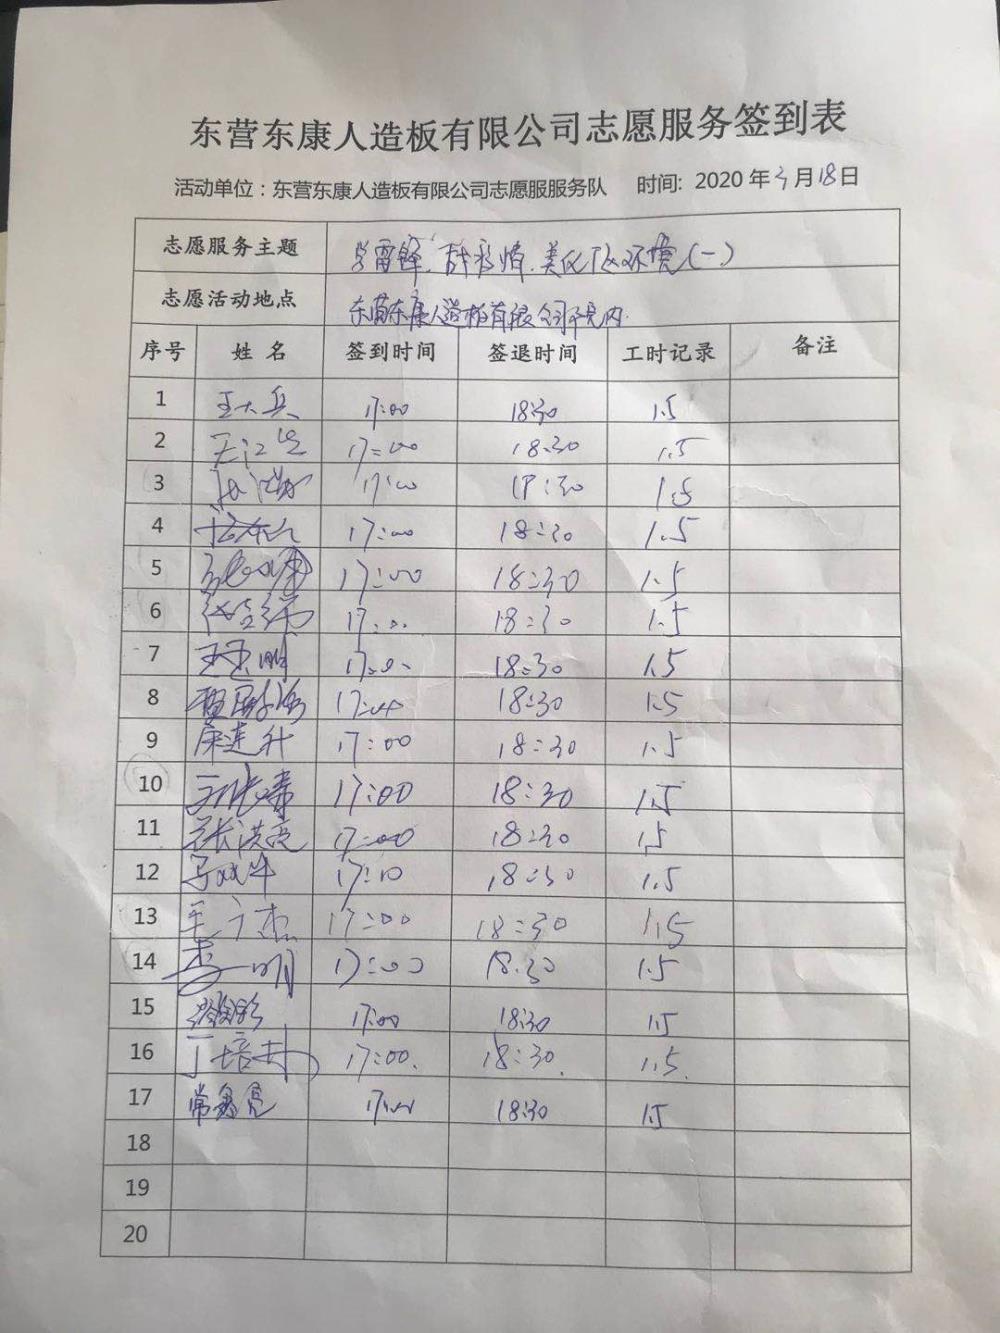 东营东康人造板有限公司志愿服务签到表
活动单位：东营东康人造板有限公司志愿服服务队 时间: 2020 年 3 月 18 日
志愿服务主题 学雷锋. 美化厂区环境(一)
志愿活动地点 东营东康人造板有限公司院内.
序号 姓 名 签到时间 签退时间 工时记录 备注
1 王大兵 17:00 18:30 1.5
2 17:00 18:30 1.5
3 17:00 18:30 1.5
4 17:00 18:30 1.5
5 17:00 18:30 1.5
6 17:00 18:30 1.5
7 17:00 18:30 1.5
8 17:00 18:30 1.5
9 17:00 18:30 1.5
10 17:00 18:30 1.5
11 张洪亮 17:00 18:30 1.5
12 17:10 18:30 1.5
13 17:00 18:30 1.5
14 李一明 17:00 18:30 1.5
15 17:00 18:30 1.5
16 丁培 17:00. 18:30. 1.5.
17 常 亮 17:00 18:30 1.5
18
19
20